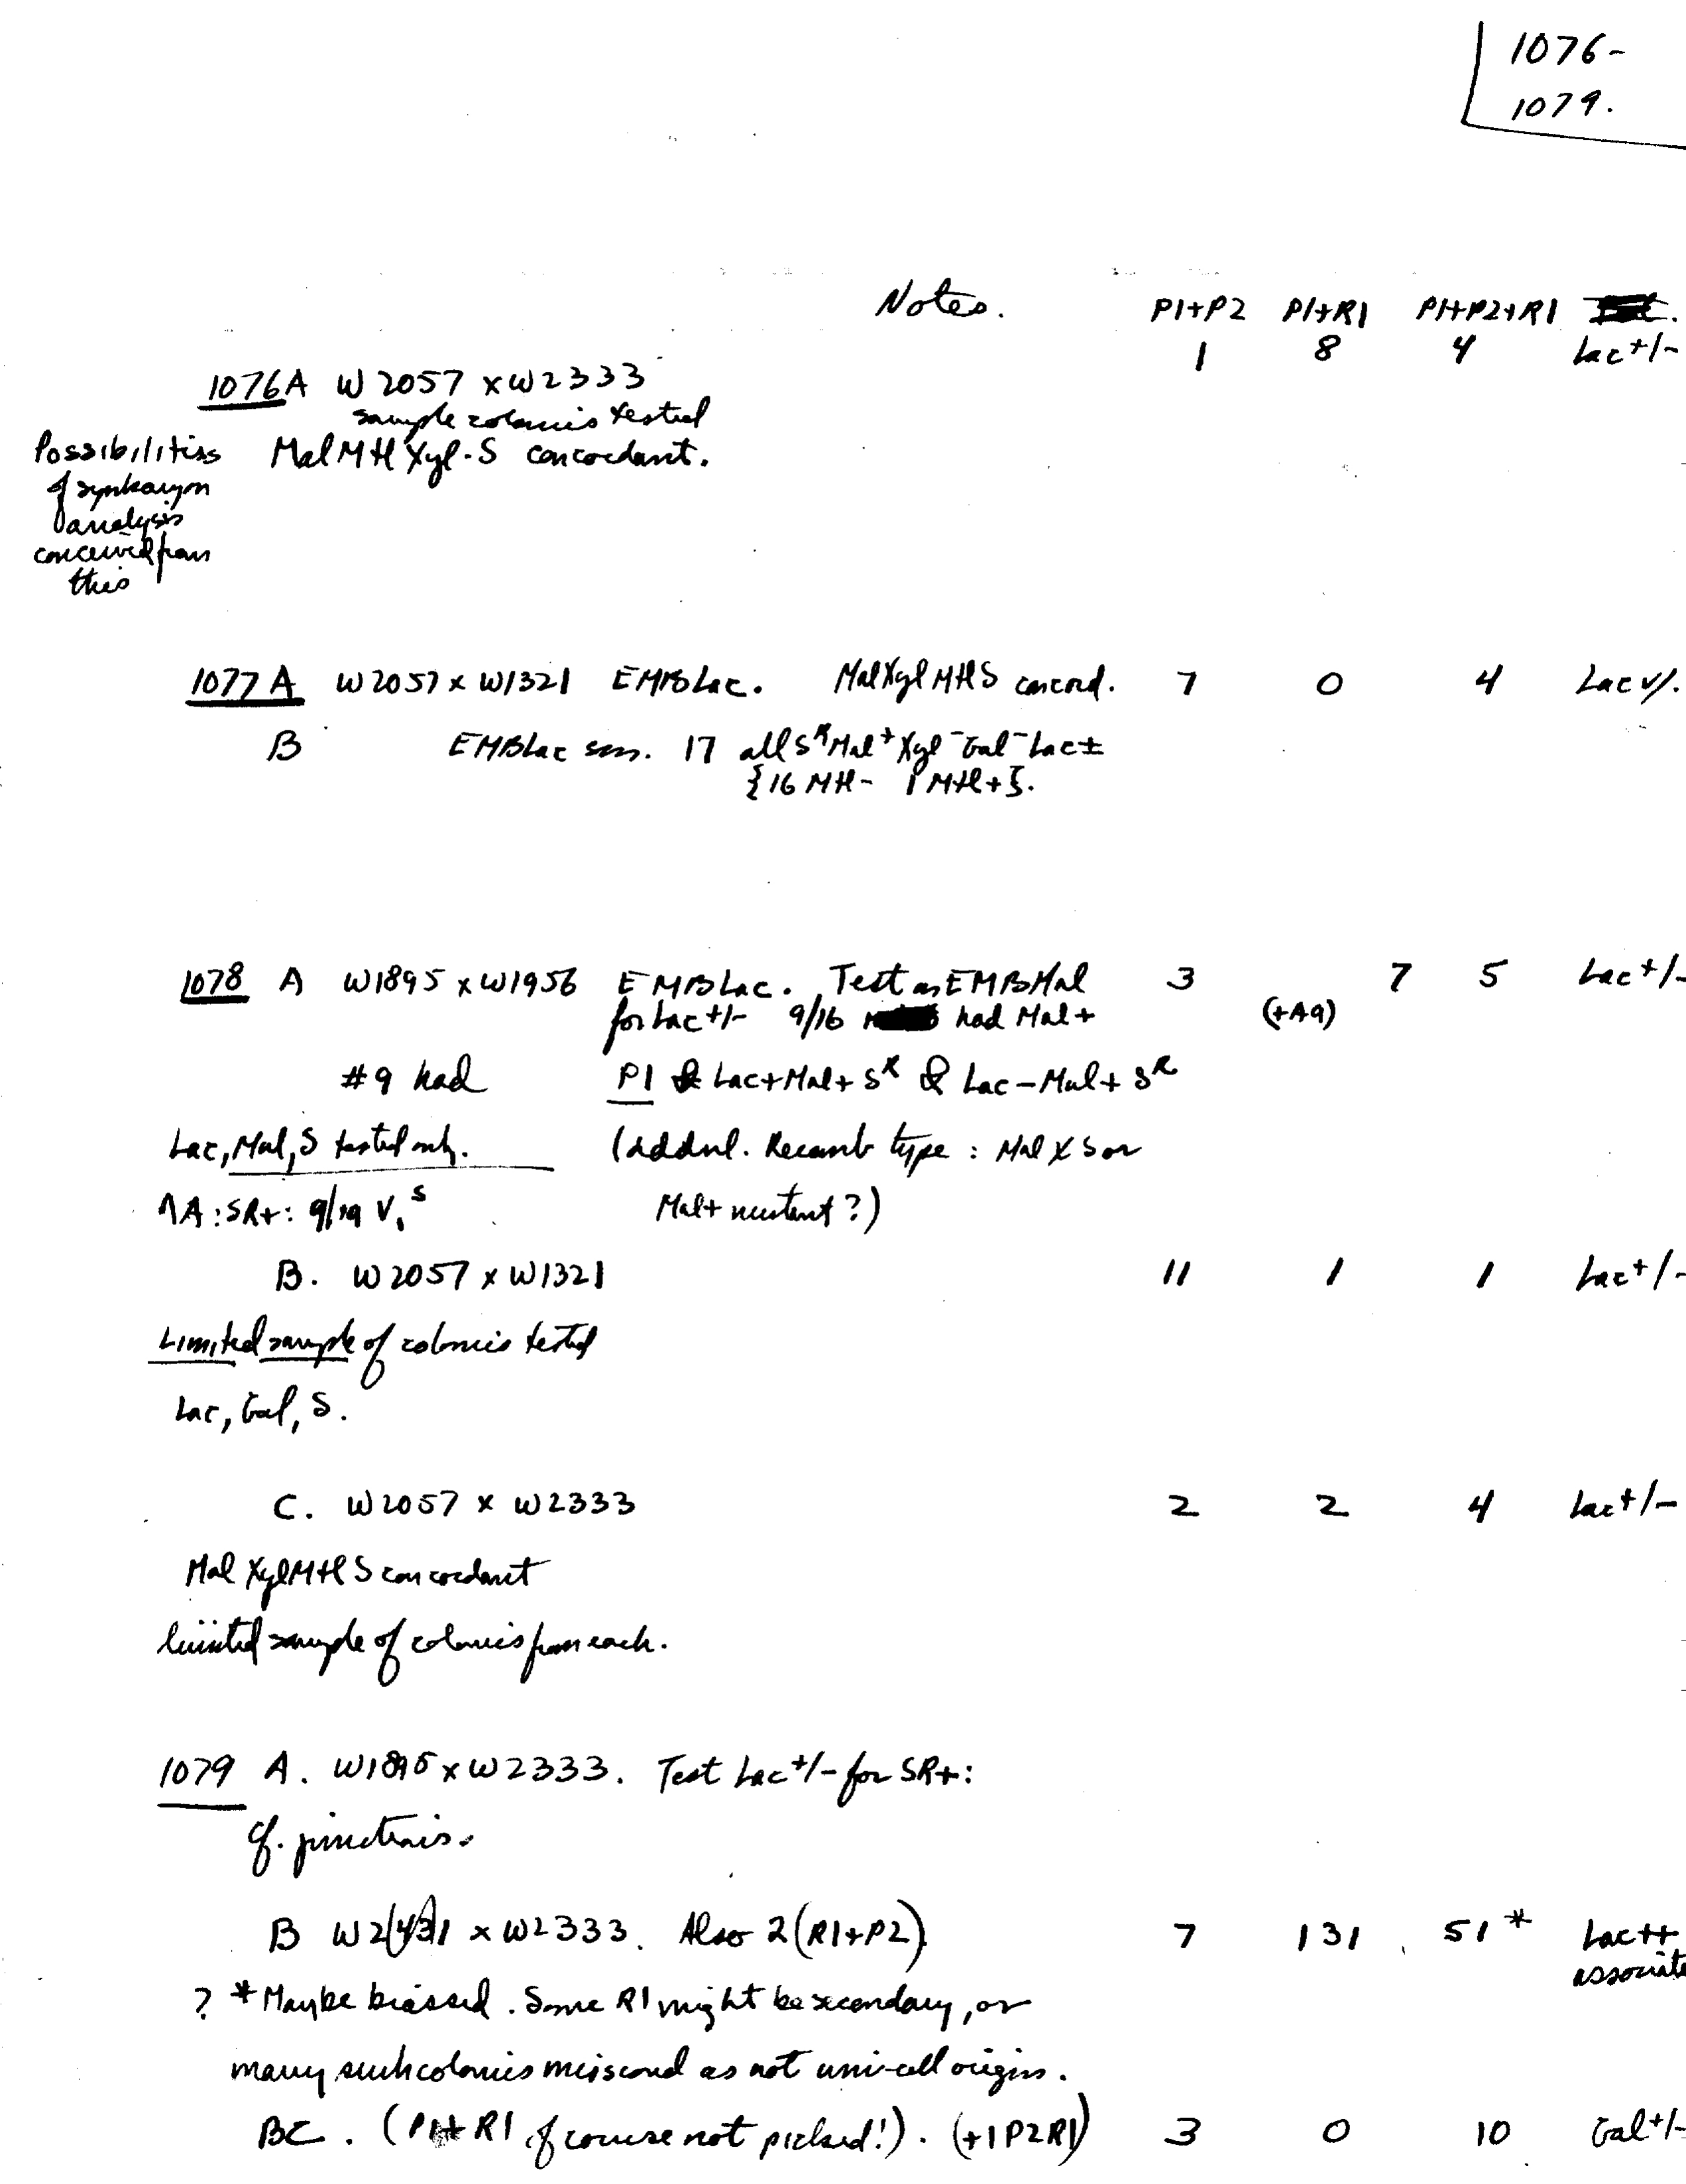 1076-
1079.
Notes. P1+P2 P1+R1 P1+P2+R1
1 8 4 Lac+/-
1076A W2057 x W2333
sample colonies tested
Possibilities MalMtlXyl-S concordant.
of synkaryon
analysis
conceived from
this
1077A W2057 x W1321 EMBLac. MalXylMtlS concord. 7 0 4 Lac v/.
B EMBLac sm. 17 all S^R Mal+ Xyl- Gal- Lac±
{16 Mtl- 1 Mtl+}.
1078 A W1895 x W1956 EMBLac. Test on EMBMal 3 7 5 Lac+/-
for Lac+/- 9/16 had Mal+ (+A9)
#9 had P1 & Lac+Mal+ S^R & Lac-Mal+ S^R
Lac, Mal, S tested only. (Addnl. Recomb type: Mal x S or
1A: SR+: 9/19 V₁^S Mal+ mutant?)
B. W2057 x W1321 11 1 1 Lac+/-
Limited sample of colonies tested
Lac, Gal, S.
C. W2057 x W2333 2 2 4 Lac+/-
Mal Xyl Mtl S concordant
limited sample of colonies from each.
1079 A. W1895 x W2333. Test Lac+/- for SR+:
cf.
B x W2333. Also 2(R1+P2) 7 131 51* Lac++
associate
? *Maybe biassed. Some R1 might be secondary, or
many such colonies misscored as not uni-cell origins.
BC. (P1+R1 of course not picked!). (+1P2R1) 3 0 10 Gal+/-